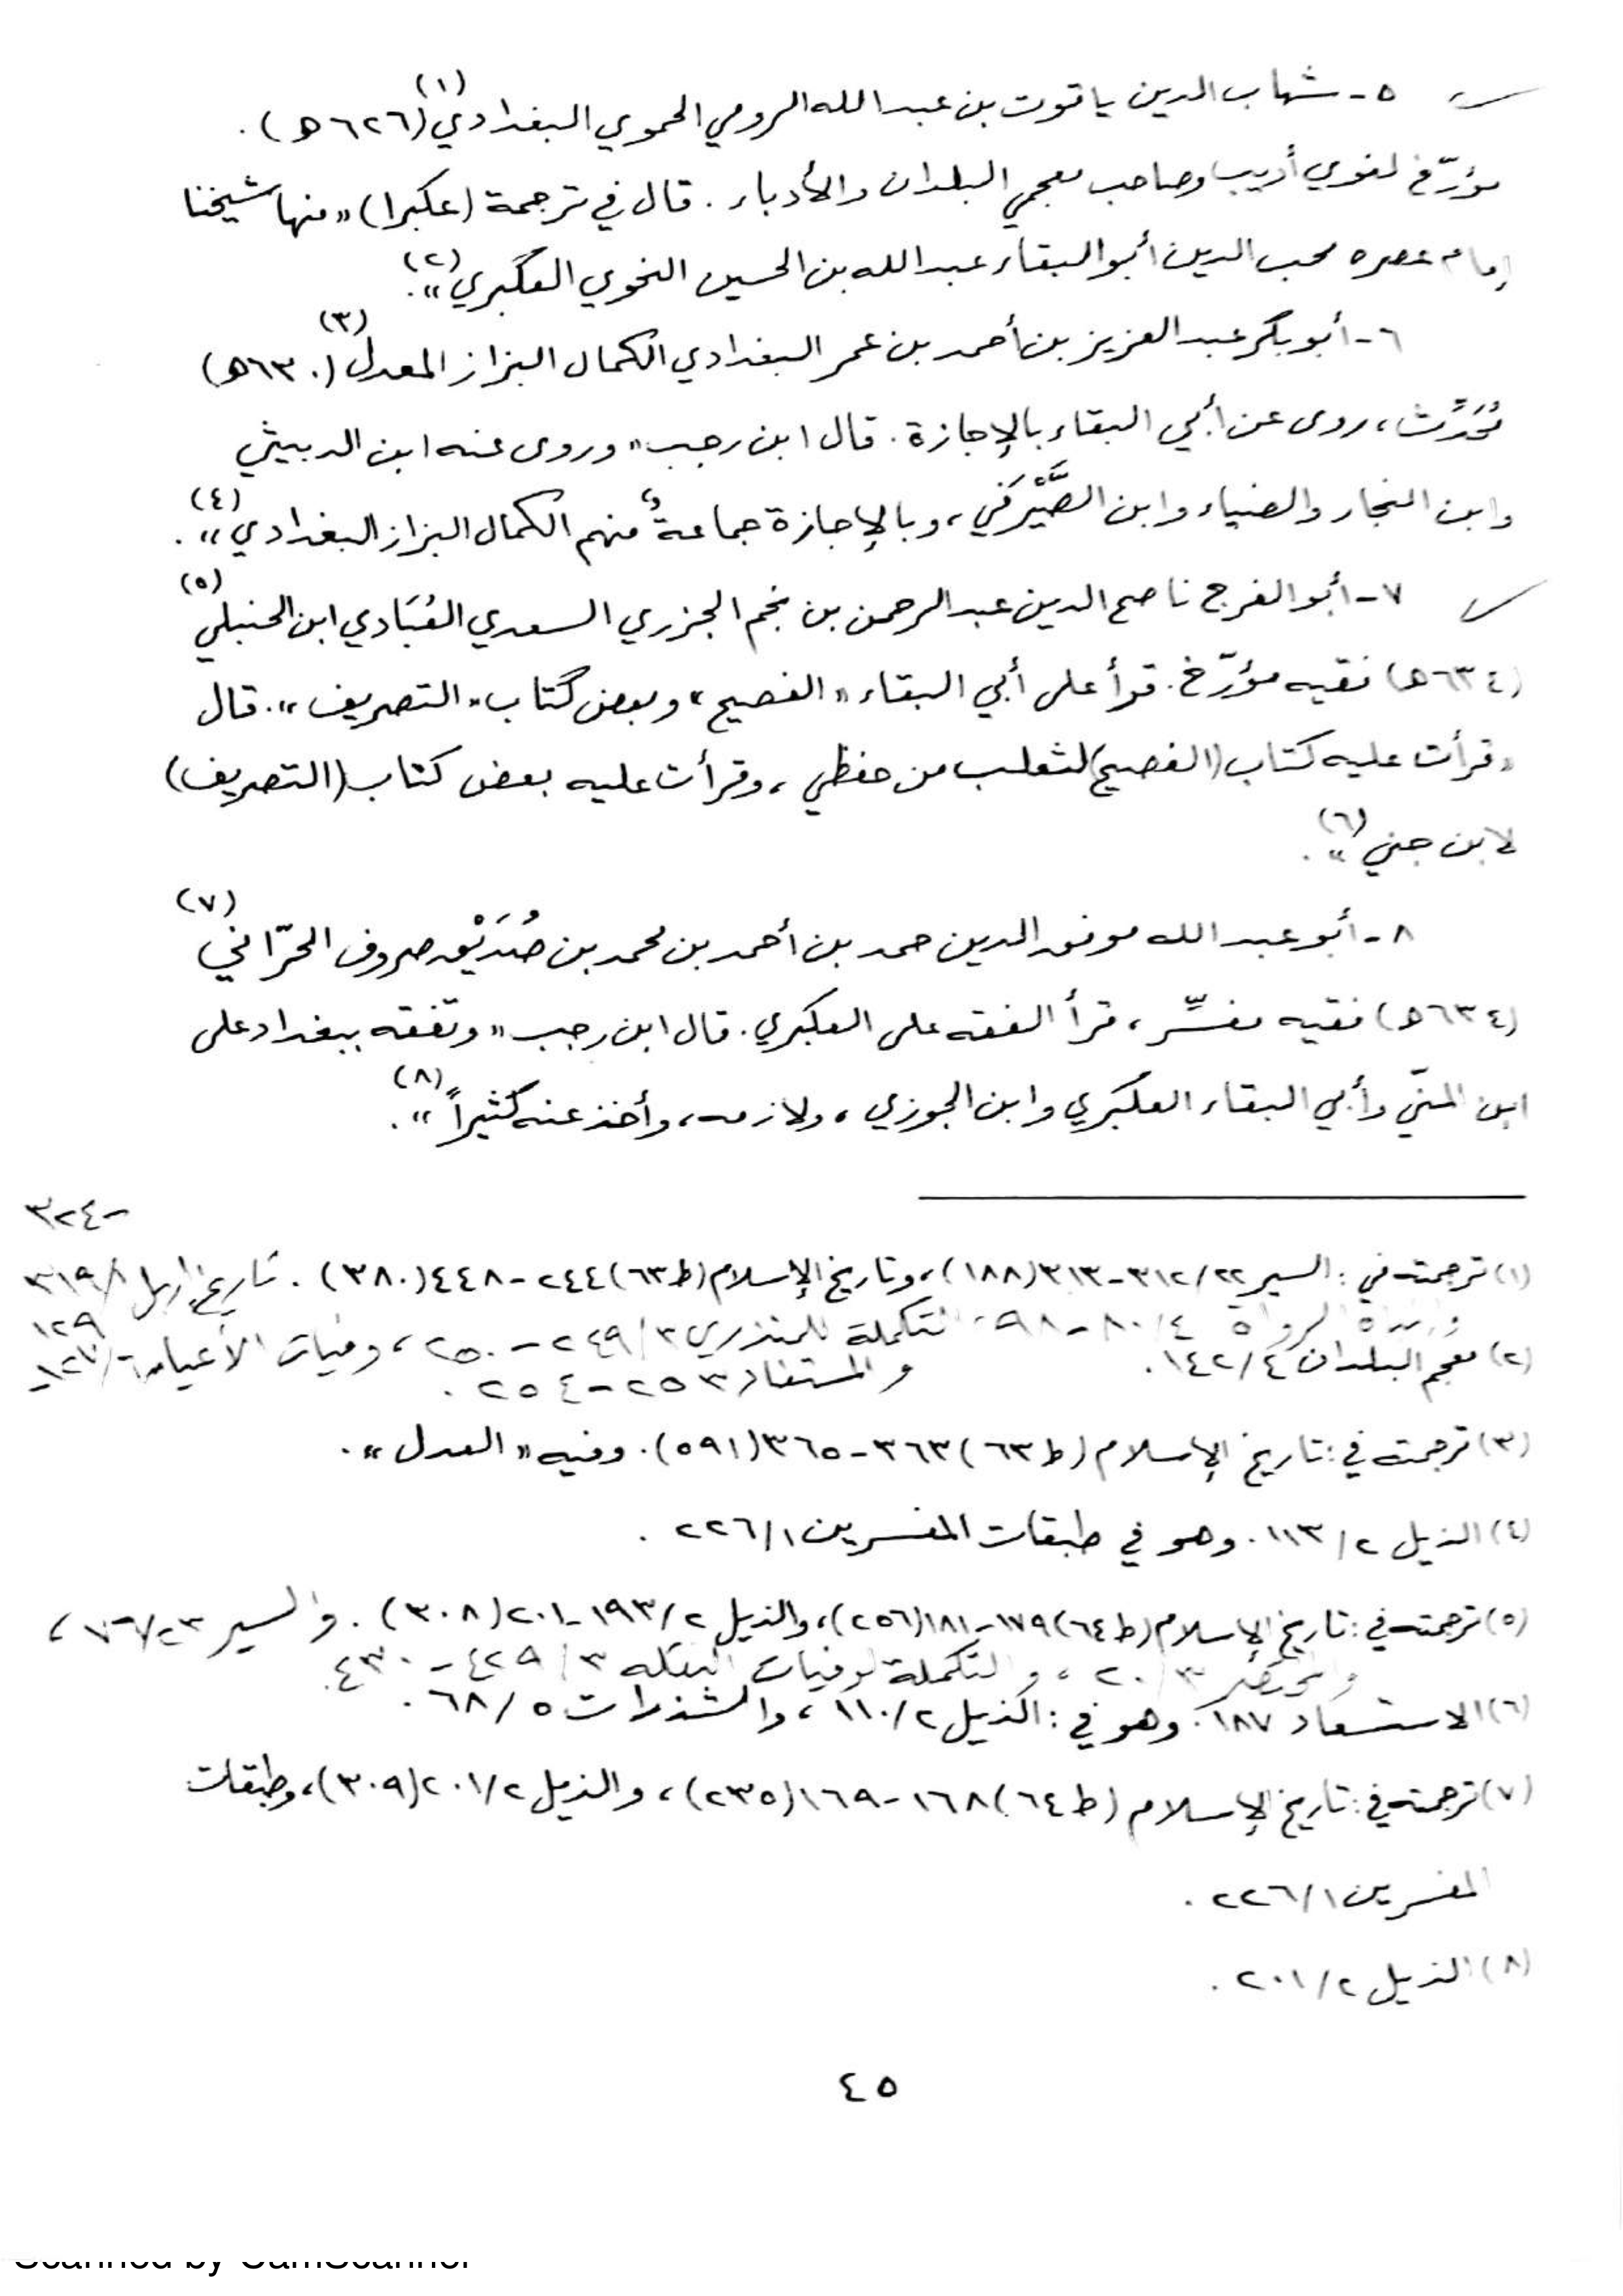 ٥- شهاب الدين ياقوت بن عبد الله الرومي الحموي البغدادي (١) (٦٢٦ھ).
مؤرّخ لغوي أديب وصاحب معجمي البلدان والأدباء. قال في ترجمة (عكبرا) «منها شيخنا
إمام عصره محب الدين أبو البقاء عبد الله بن الحسين النحوي العكبري (٢)».
٦- أبو بكر عبد العزيز بن أحمد بن عمر البغدادي الكمال البزاز المعدل (٣) (٦٣٠ھ)
مُحَدِّث، روى عن أبي البقاء بالإجازة. قال ابن رجب «وروى عنه ابن الدبيثي
وابن النجار والضياء وابن الصَّيْرَفي، وبالإجازة جماعةٌ، منهم الكمال البزاز البغدادي (٤)».
٧- أبو الفرج ناصح الدين عبد الرحمن بن نجم الجزري السعدي العُبَادي ابن الحنبلي (٥)
(٦٣٤ھ) فقيه مؤرّخ. قرأ على أبي البقاء «الفصيح» وبعض كتاب «التصريف». قال
«قرأت عليه كتاب (الفصيح) لثعلب من حفظي، وقرأت عليه بعض كتاب (التصريف)
لابن جني (٦)».
٨- أبو عبد الله موفق الدين حمد بن أحمد بن محمد بن صُدَيْق صروف الحرّاني (٧)
(٦٣٤ھ) فقيه مفسِّر، قرأ الفقه على العكبري. قال ابن رجب «وتفقه ببغداد على
ابن المنّي وأبي البقاء العكبري وابن الجوزي، ولازمه، وأخذ عنه كثيراً (٨)».
(١) ترجمته في: السير ٢٢/ ٣١٢-٣١٣ (١٨٨)، وتاريخ الإسلام (ط ٦٣) ٢٤٤-٤٤٨ (٣٨٠). تاريخ إربل ١/ ٣١٩
-٣٢٤
الرواة ٤/ ٨٠-٩٨، التكملة للمنذري ٣/ ٢٤٩-٢٥٠، وفيات الأعيان ٦/ ١٢٧-
١٢٩
(٢) معجم البلدان ٤/ ١٤٢.
والمستفاد ٢٥٣-٢٥٤.
(٣) ترجمته في: تاريخ الإسلام (ط ٦٣) ٣٦٣-٣٦٥ (٥٩١). وفيه «العدل».
(٤) الذيل ٢/ ١١٣. وهو في طبقات المفسرين ١/ ٢٢٦.
(٥) ترجمته في: تاريخ الإسلام (ط ٦٤) ١٧٩-١٨١ (٢٥٦)، والذيل ٢/ ١٩٣-٢٠١ (٣٠٨). والسير ٢٣/ ٦-٧،
٣/ ٢٠، والتكملة لوفيات النقلة ٣/ ٤٢٩-٤٣٠.
(٦) الاستسعاد ١٨٧. وهو في: الذيل ٢/ ١١٠، والشذرات ٥/ ٦٨.
(٧) ترجمته في: تاريخ الإسلام (ط ٦٤) ١٦٨-١٦٩ (٢٣٥)، والذيل ٢/ ٢٠١ (٣٠٩)، وطبقات
المفسرين ١/ ٢٢٦.
(٨) الذيل ٢/ ٢٠١.
٤٥
Scanned by CamScanner